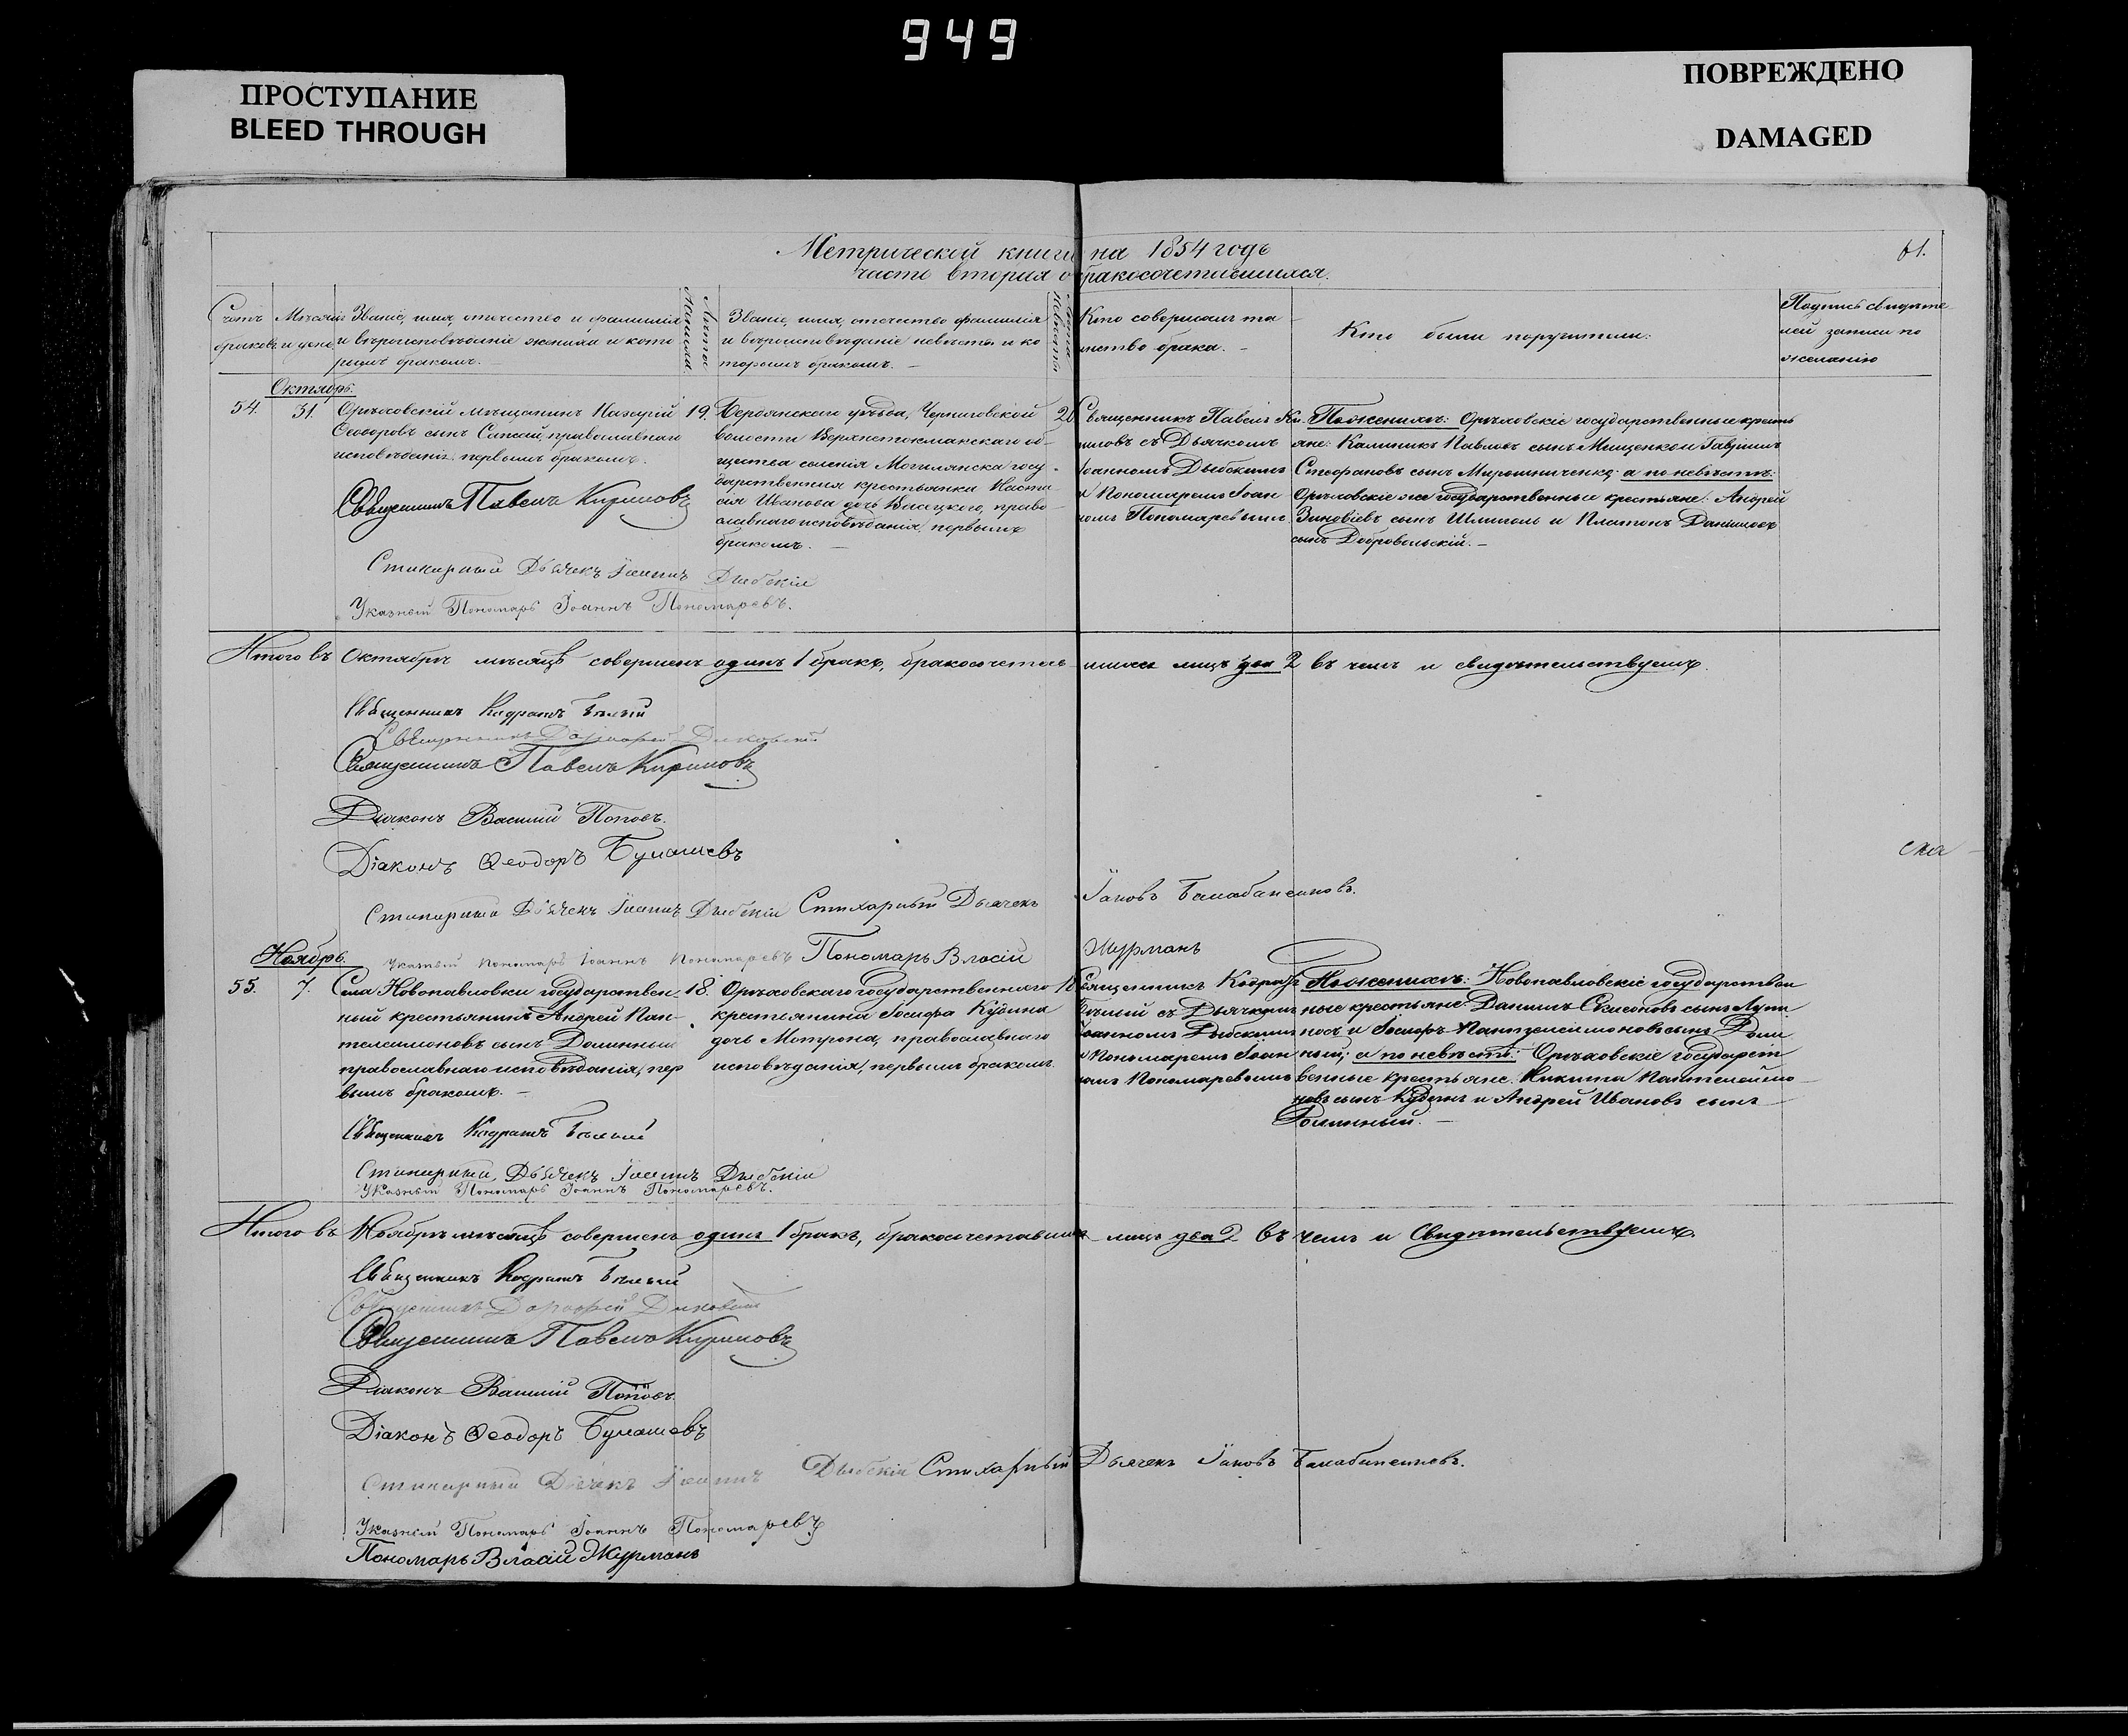 949
ПРОСТУПАНИЕ
BLEED THROUGH
ПОВРЕЖДЕНО
DAMAGED
Метрической книги на 1854 годъ
61.
часть вторая о бракосочетавшихся.
Счетъ браковъ
Мѣсяцъ и день
Званіе, имя, отчество и фамилія
и вѣроисповѣданіе жениха и кото
рымъ бракомъ.
Лѣта жениха
Званіе, имя, отчество фамилія
и вѣроисповѣданіе невѣсты и ко
торымъ бракомъ. —
Лѣта невѣсты
Кто совершалъ та
инство брака. —
Кто были поручители.
Подпись свидѣте
лей записи по
желанію
Октябрь.
54. 31.
Орѣховскій мѣщанинъ
Ѳеодоровъ сынъ православнаго
исповѣданія, первымъ бракомъ.
19.
Бердянскаго уѣзда, Черниговской
волости Верхнетокмакскаго об-
щества селенія Могилянска госу-
дарственная крестьянка Наста-
сія Иванова дочь право-
славнаго исповѣданія, первымъ
бракомъ. —
20
Священникъ Павелъ Ки-
риловъ съ Дьячкомъ
Іоанномъ
и Пономаремъ Іоан
номъ Пономаревымъ
По женихѣ: Орѣховскіе государственные кресть
яне: Калиникъ Павловъ сынъ Мищенко и Гавріилъ
Стефановъ сынъ Мирошниченко; а по невѣстѣ:
Орѣховскіе же государственные крестьяне: Андрей
Зиновіевъ сынъ и Платонъ Даниловъ
сынъ Добровольскій. —
Священникъ Павелъ Кириловъ
Стихарный Дьячекъ Іоаннъ
Указный Пономарь Іоаннъ Пономаревъ.
Итого въ Октябрѣ мѣсяцѣ совершенъ одинъ 1 бракъ, бракосочетав-шихся лицъ два 2 въ чемъ и свидѣтельствуемъ.
Священникъ Кодратъ Бѣлый
Священникъ
Священникъ Павелъ Кириловъ
Діаконъ Василій Поповъ.
Діаконъ Ѳеодоръ
Стихарный Дьячекъ Іоаннъ Стихарный Дьячекъ Іаковъ
Указный Пономарь Іоаннъ Пономаревъ Пономарь Власій Журманъ
Ноябрь.
55. 7.
Села Новопавловки государствен-
ный крестьянинъ Андрей Пан-
телеимоновъ сынъ Долинный
православнаго исповѣданія, пер
вымъ бракомъ. —
18.
Орѣховскаго государственнаго
крестьянина Іосифа Кудина
дочь Мотрона, православнаго
исповѣданія, первымъ бракомъ.
18
Священникъ Кодратъ
Бѣлый съ Дьячкомъ
Іоанномъ
и Пономаремъ Іоан
номъ Пономаревымъ
По женихѣ: Новопавловскіе государствен
ные крестьяне: Даніилъ Симеоновъ сынъ Лупи
носъ и Іосифъ Пантелеимоновъ сынъ Доли
нный; а по невѣстѣ: Орѣховскіе государст
венные крестьяне. Никита Пантелеймо
новъ сынъ Кудинъ и Андрей Ивановъ сынъ
Долинный. —
Священникъ Кодратъ Бѣлый
Стихарный Дьячекъ Іоаннъ
Указный Пономарь Іоаннъ Пономаревъ.
Итого въ Ноябрѣ мѣсяцѣ совершенъ одинъ 1 бракъ, бракосочетавшихся лицъ два 2 въ чемъ и Свидѣтельствуемъ.
Священникъ Кодратъ Бѣлый
Священникъ
Священникъ Павелъ Кириловъ
Діаконъ Василій Поповъ.
Діаконъ Ѳеодоръ
Стихарный Дьячекъ Іоаннъ Стихарный Дьячекъ Іаковъ
Указный Пономарь Іоаннъ Пономаревъ
Пономарь Власій Журманъ